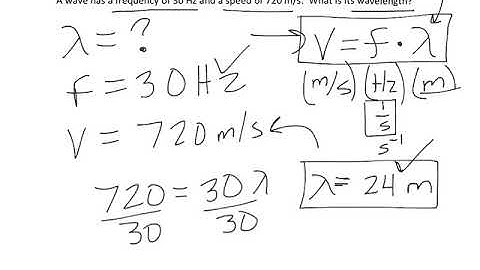 A wave has a frequency of 30 Hz and a speed of 720 m/s. What is its wavelength?
λ = ?
V = f · λ
f = 30 Hz
(m/s) (Hz) (m)
1/s
s⁻¹
V = 720 m/s
720/30 = 30 λ/30
λ = 24 m